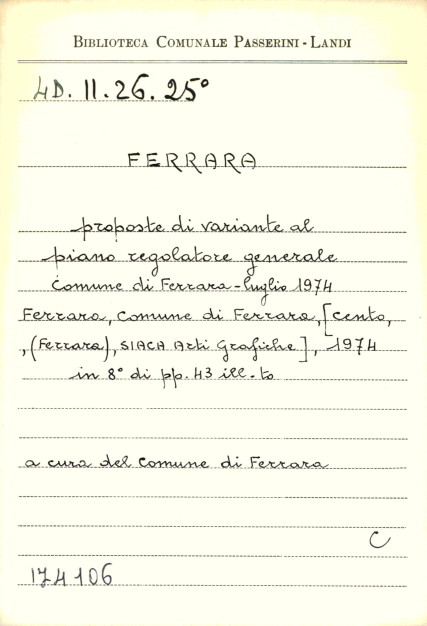 BIBLIOTECA COMUNALE PASSERINI - LANDI
4D. II. 26. 25°
FERRARA
proposte di variante al
piano regolatore generale
Comune di Ferrara - luglio 1974
Ferrara, Comune di Ferrara, [Cento,
,(Ferrara), SIACA Arti Grafiche], 1974
in 8° di pp. 43 ill. to
a cura del Comune di Ferrara
C
174106